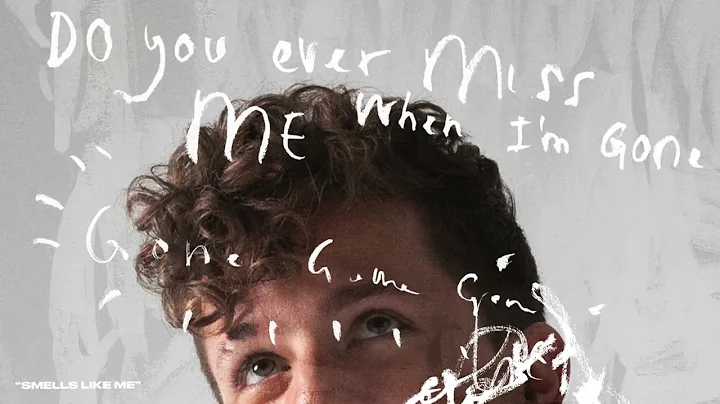 Do you ever Miss
ME When I'm Gone
Gone Gone Gone
"SMELLS LIKE ME"